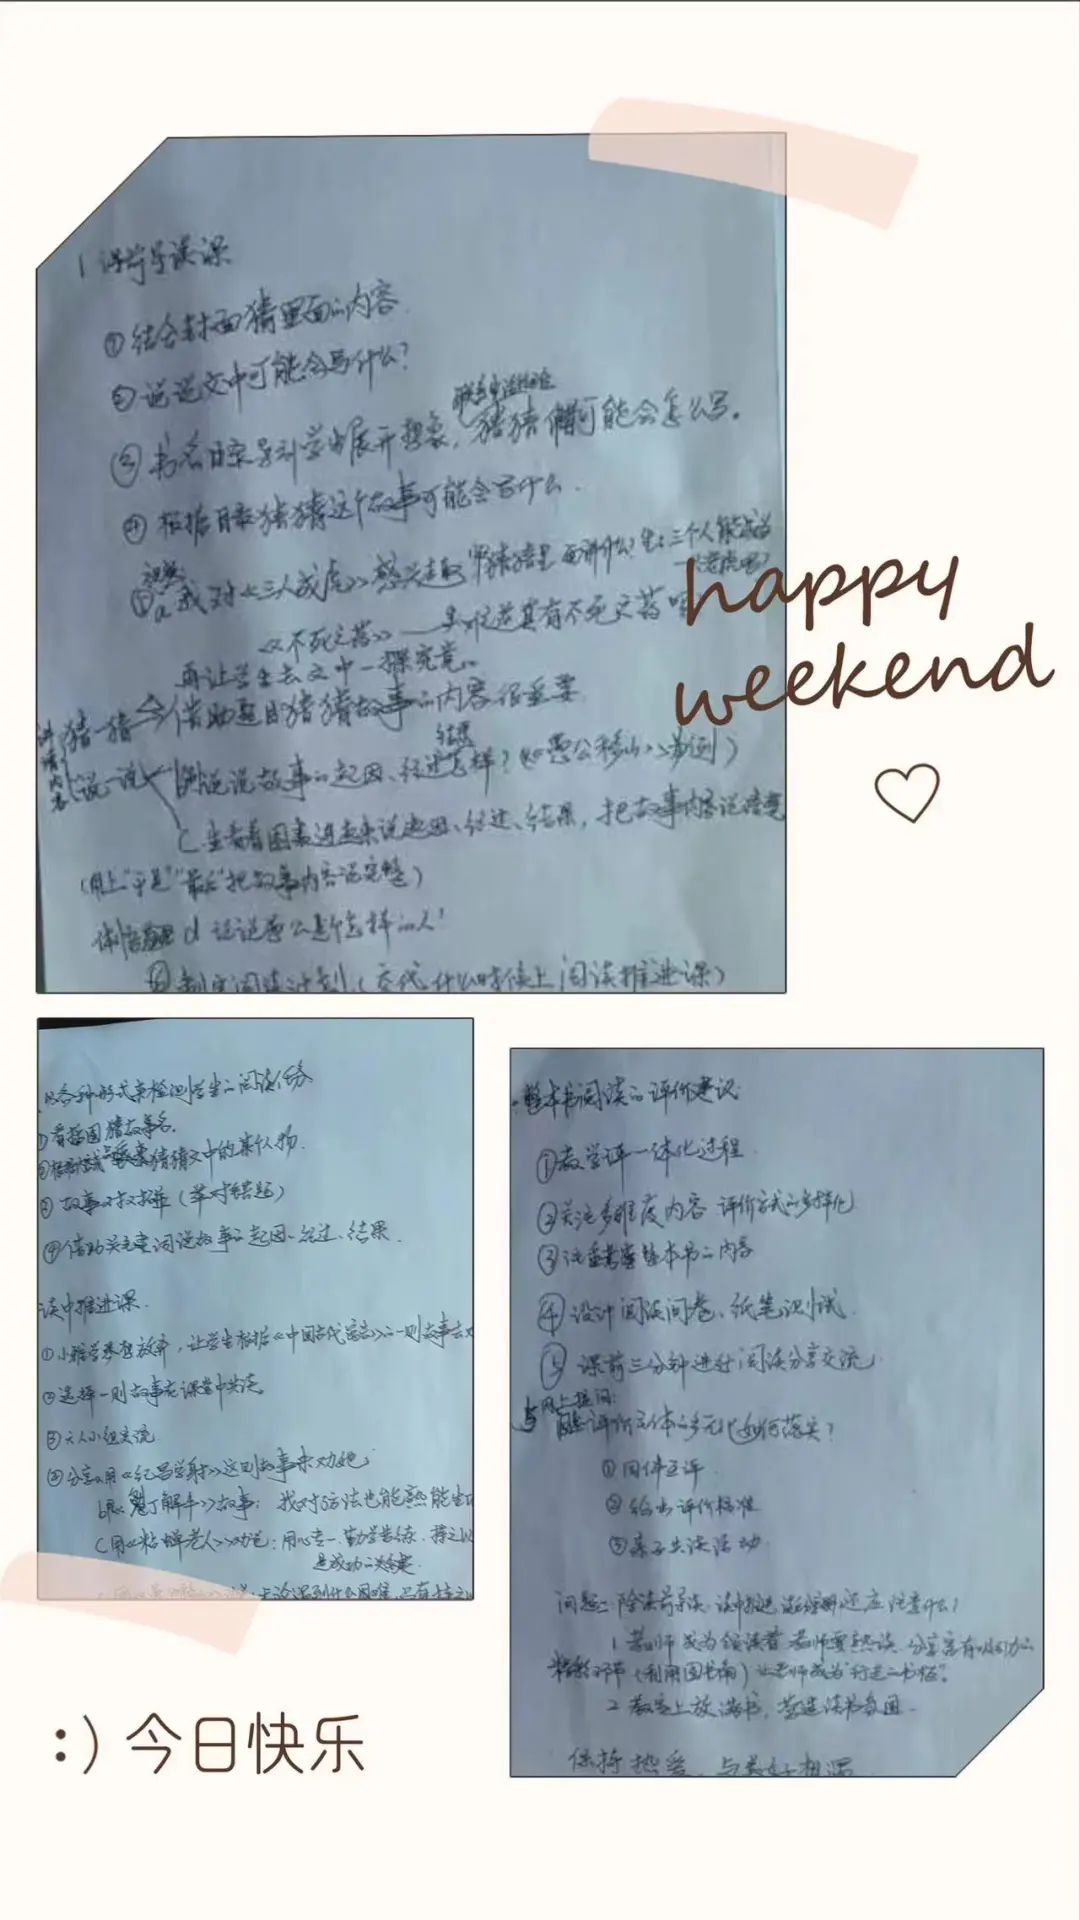 1 课前导读课
①结合封面猜里面的内容.
②说说文中可能会写什么?
联系生活经验
③书名目录导引学生展开想象，猜猜可能会怎么写。
④根据目录猜猜这个故事可能会写什么.
a 我对《三人成虎》感兴趣 猜猜里面讲什么? 生:三个人能
《不死之药》——真有不死之药
再让学生去文中一探究竟。
猜一猜 借助题目猜猜故事的内容很重要
结果
说一说 b 说说故事的起因、经过怎样?（《愚公移山》为例）
C 生看着图表说起因、经过、结果，把故事内容说清楚
（用上"于是""最后"把故事内容说完整）
d 说说愚公是个怎样的人
⑤制定阅读计划.（交代什么时候上阅读推进课）
happy
weekend
以各种形式来检测学生的阅读任务
①看插图猜故事名.
猜猜文中的某人物.
③故事对对碰（举对错题）
④借助关键词说故事的起因、经过、结果.
读中推进课.
让学生根据《中国古代寓言》的一则故事去
②选择一则故事在课堂中共读。
③六人小组交流
④分享a用《纪昌学射》这则故事来劝她;
《庖丁解牛》故事: 找对方法也能熟能生
C用《粘蝉老人》劝说:用心专一、勤学苦练、
是成功的关键.
整本书阅读的评价建议
①教学评一体化过程.
②关注多维度内容 评价方式的多样化
③注重考查整本书的内容
④设计阅读问卷、纸笔测试.
⑤课前三分钟进行阅读分享交流.
网上提问:
评价主体的多元化如何落实?
①同伴互评.
②给出评价标准
③亲子共读活动.
问题二 除读前导读、读中推进、还应注意什么?
1 老师成为领读者 老师要熟读、分享富有吸引力的
精彩环节（利用图书角）让老师成为"行走的书柜".
2 教室上放满书，营造读书氛围.
保持热爱，与美好相遇
:) 今日快乐